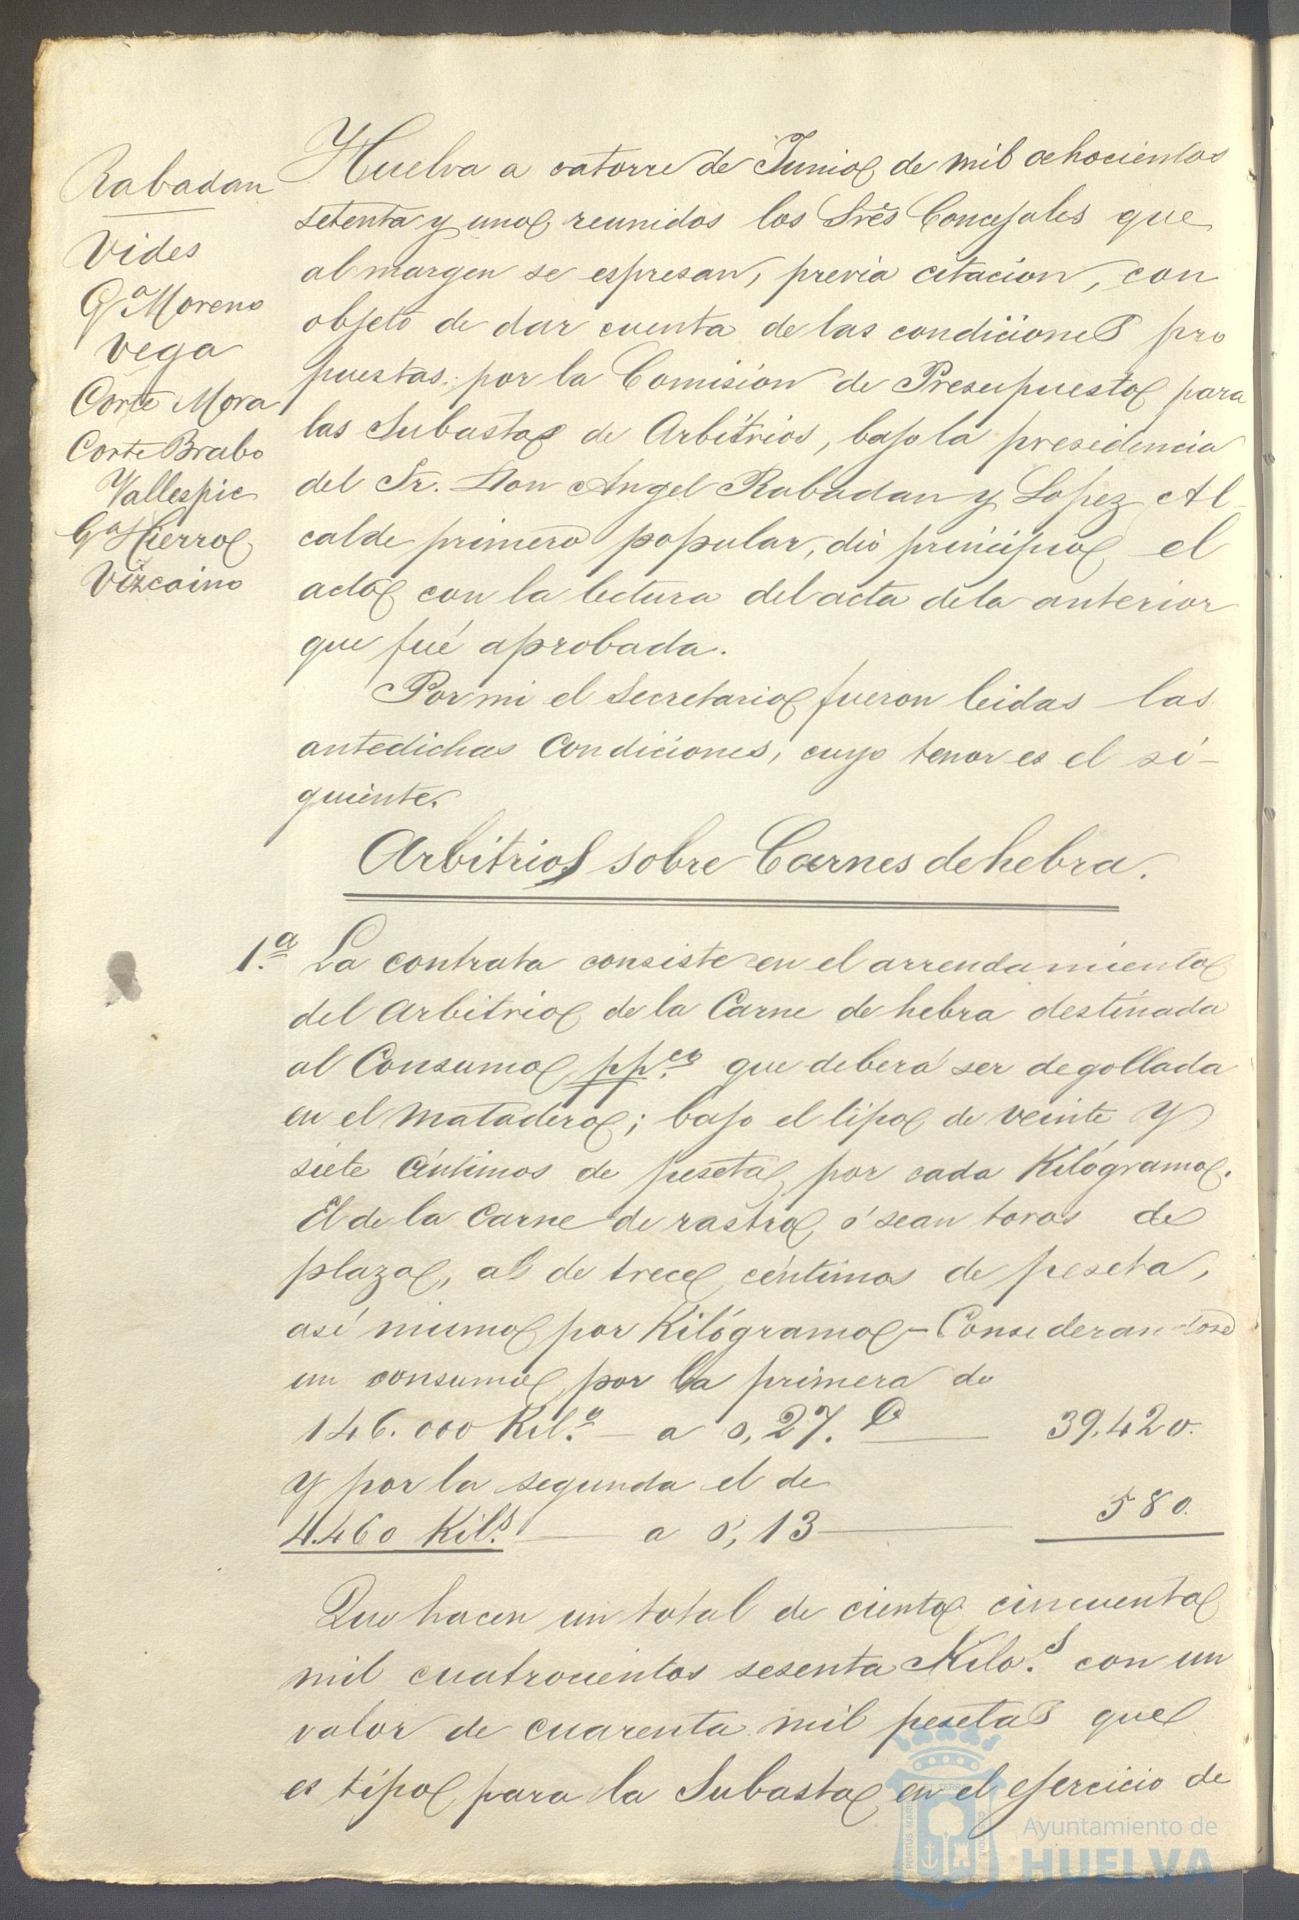 Rabadan
Vides
Gª Moreno
Vega
Corte Mora
Corte Brabo
Vallespie
Gª Hierro
Vizcaino
Huelva a catorce de Junio de mil ochocientos
setenta y uno reunidos los Sres Concejales que
al margen se espresan, previa citacion, con
objeto de dar cuenta de las condiciones pro
puestas por la Comision de Presupuesto para
las Subastas de Arbitrios, bajo la presidencia
del Sr. Don Angel Rabadan y Lopez Al-
calde primero popular, dió principio el
acto con la lectura del acta de la anterior
que fué aprobada.
Por mi el Secretario fueron leidas las
antedichas Condiciones, cuyo tenor es el si-
guiente.
Arbitrios sobre Carnes de hebra.
1.ª La contrata consiste en el arrendamiento
del Arbitrio de la Carne de hebra destinada
al Consumo pp.co que deberá ser degollada
en el Matadero; bajo el tipo de veinte y
siete céntimos de peseta por cada Kilógramo.
El de la Carne de rastro ó sean toros de
plaza, al de trece céntimos de peseta,
así mismo por Kilógramo - Considerandose
un consumo por la primera de
146.000 Kil.º a 0,27. 39.420.
y por la segunda el de
4.460 Kil.s a 0,13 580.
Que hacen un total de ciento cincuenta
mil cuatrocientos sesenta Kilo.s con un
valor de cuarenta mil pesetas que
es tipo para la Subasta en el ejercicio de
Ayuntamiento de
HUELVA